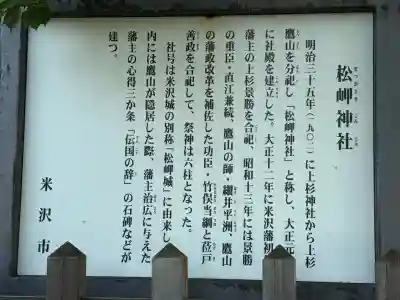 松岬神社
まつがさきじんじゃ
明治三十五年(一九〇二)に上杉神社から上杉
鷹山を分祀し「松岬神社」と称し、大正元
に社殿を建立した。大正十二年に米沢藩初
藩主の上杉景勝を合祀、昭和十三年には景勝
の重臣・直江兼続、鷹山の師・細井平洲、鷹山
の藩政改革を補佐した功臣・竹俣当綱と莅戸
善政を合祀して、祭神は六柱となった。
社号は米沢城の別称「松岬城」に由来し
内には鷹山が隠居した際、藩主治広に与えた
藩主の心得三か条「伝国の辞」の石碑などが
建つ。
米沢市